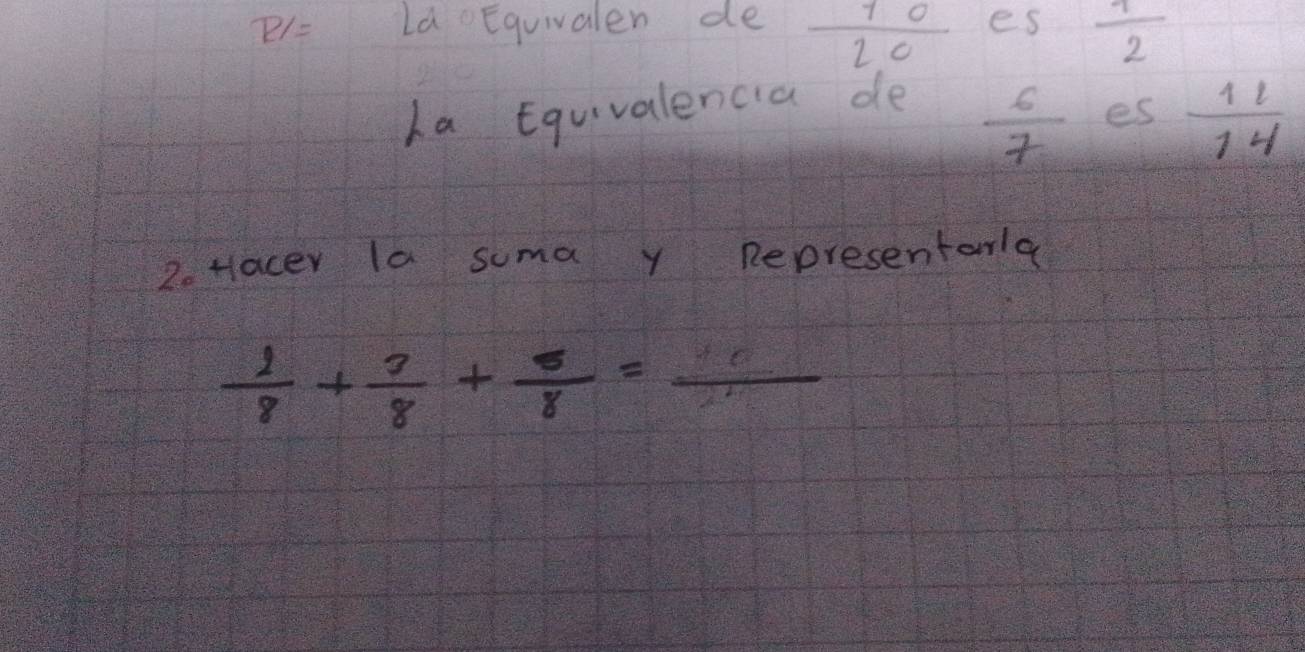 R/= La Equivalen de 10/20 es 1/2
La Equivalencia de 6/7 es 12/14
2. Hacer la suma y Representarla
2/8 + 3/8 + 5/8 =